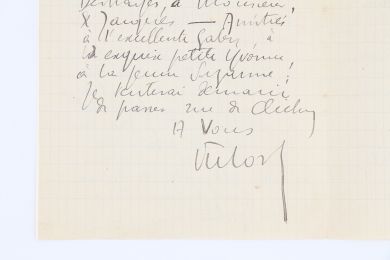 à Monsieur,
& Jacques — Amitiés
à l'excellente Gaby, à
la exquise petite Yvonne,
à la jeune Suzanne ;
Je tenterai demain
de passer rue de Clichy
A Vous